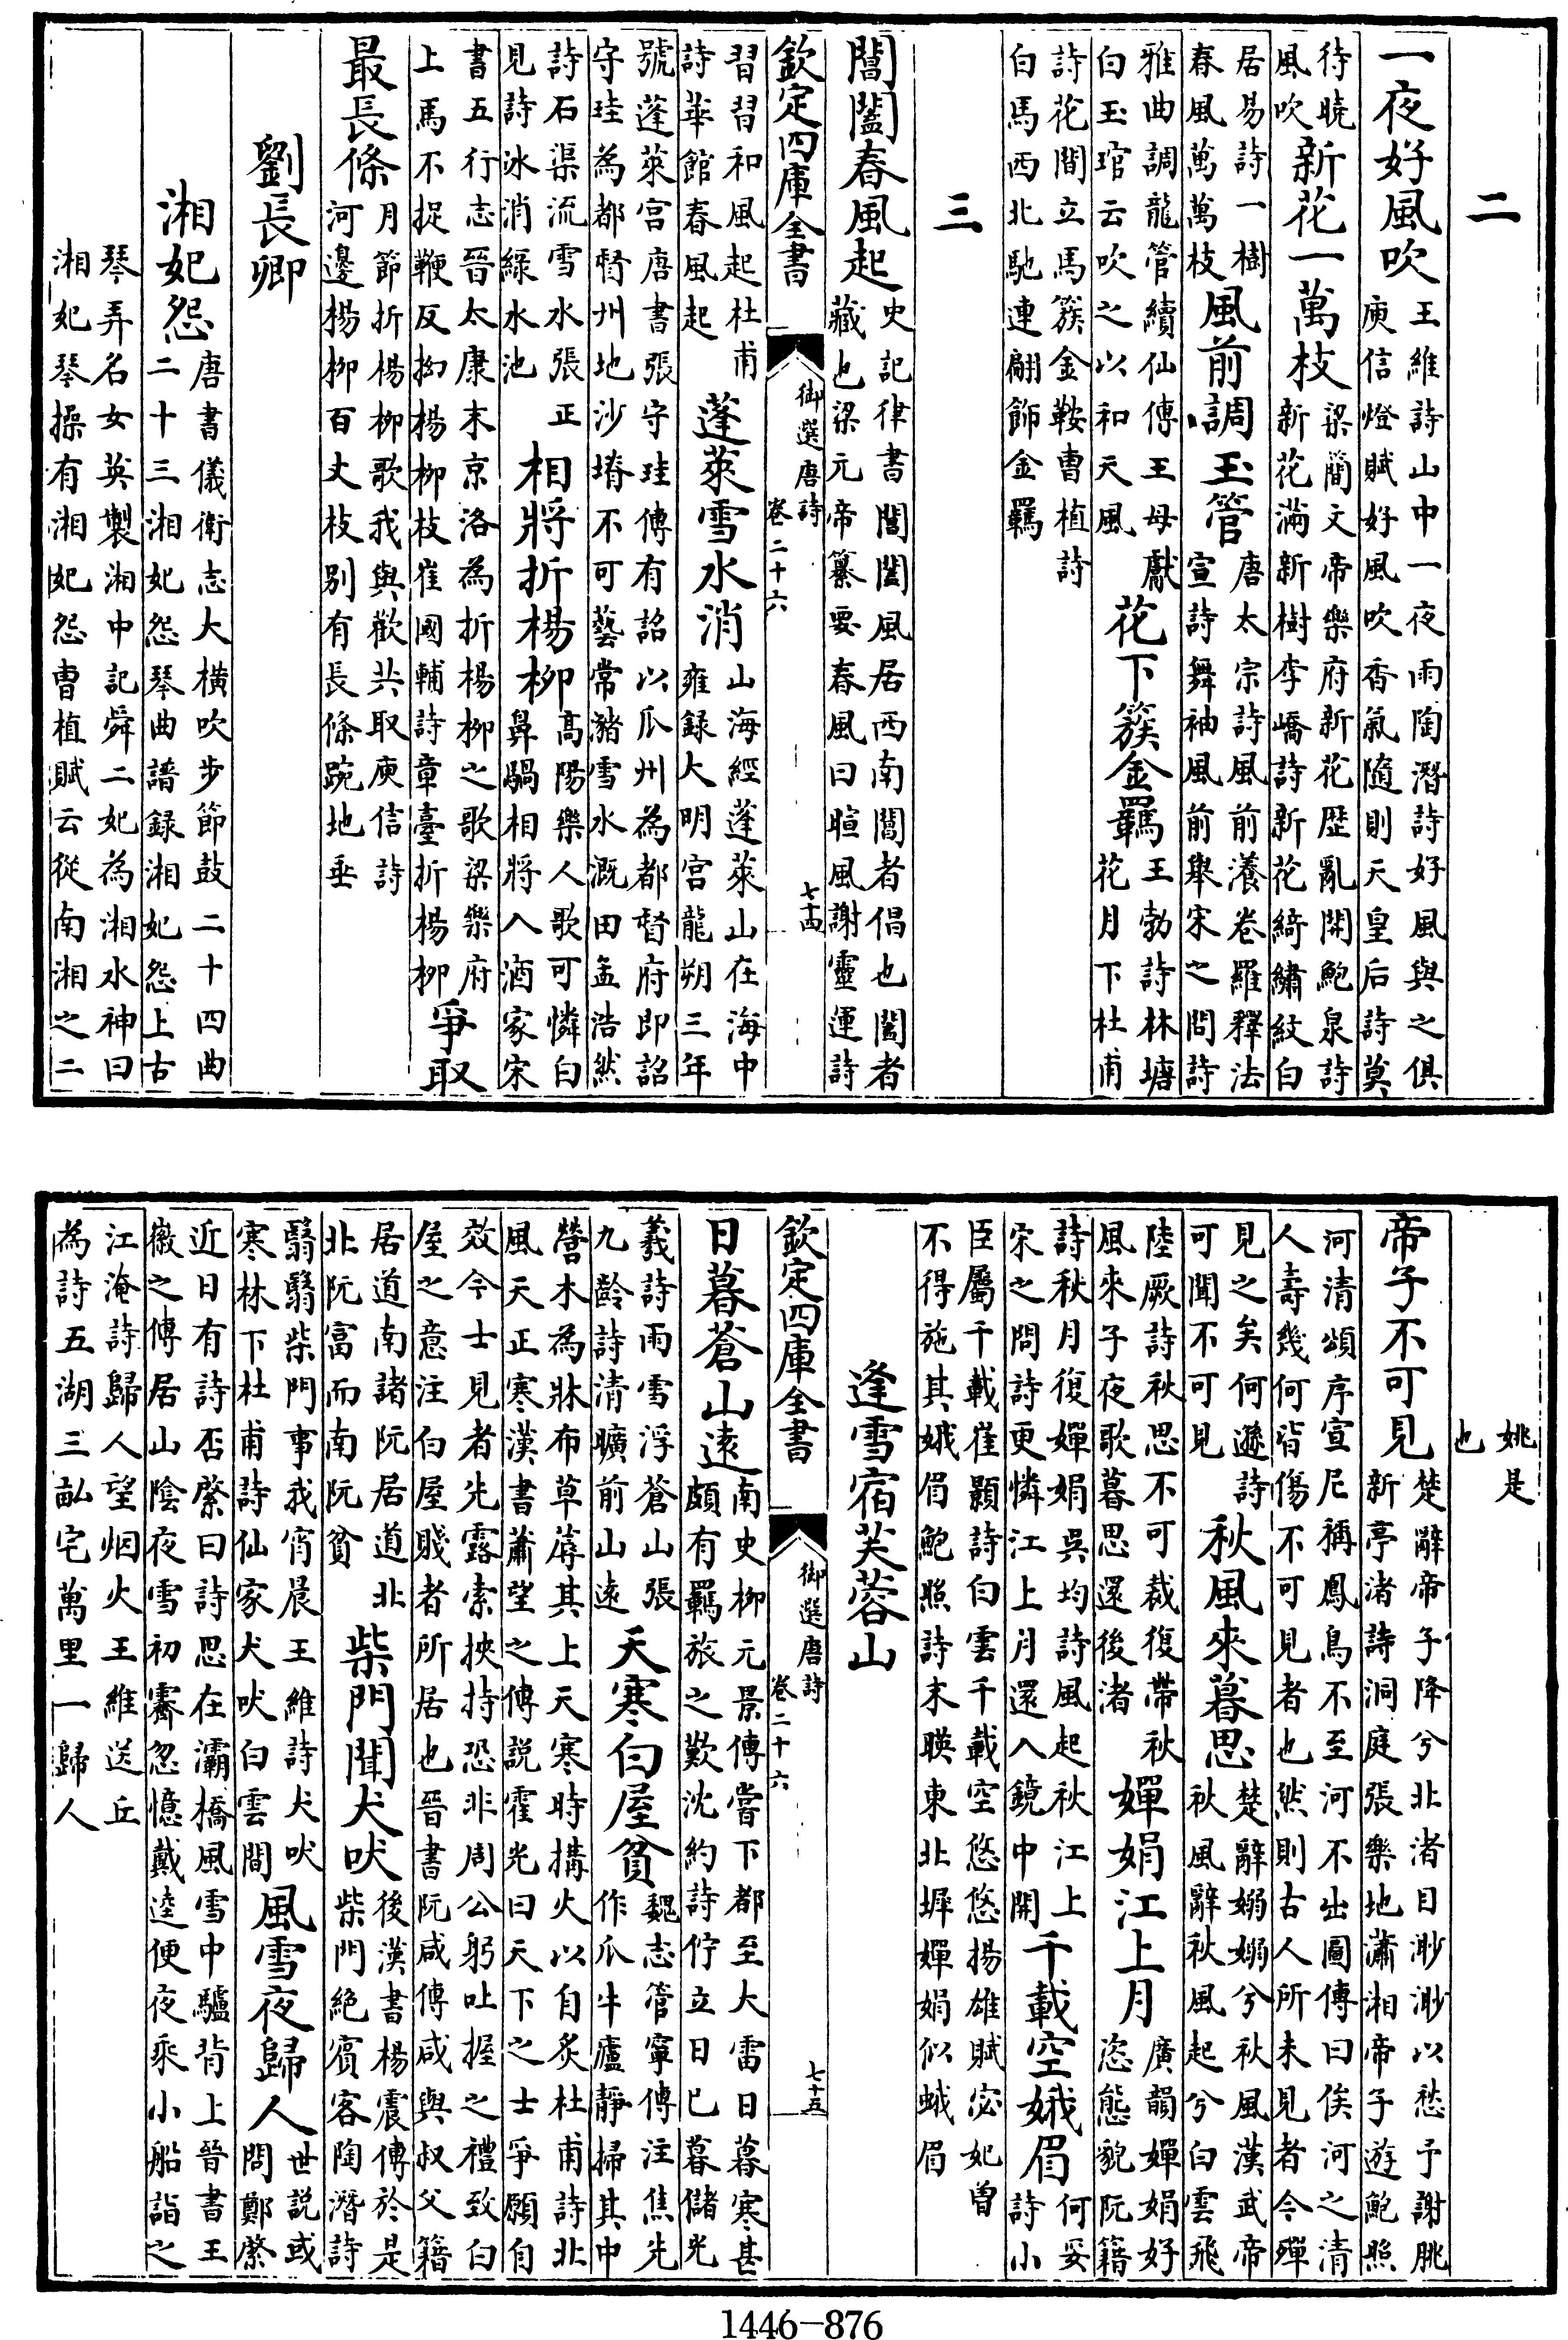 二
一夜好風吹王維詩山中一夜雨陶潛詩好風與之俱庾信燈賦好風吹香氣隨則天皇后詩莫
待曉風吹新花一萬枝梁簡文帝樂府新花歴亂開鮑泉詩新花滿新樹李嶠詩新花綺繡紋白
居易詩一樹春風萬萬枝風前調玉管唐太宗詩風前瀁卷羅釋法宣詩舞袖風前舉宋之問詩
雅曲調龍管續仙傳王母獻白玉琯云吹之以和天風花下簇金羈王勃詩林塘花月下杜甫
詩花間立馬簇金鞍曹植詩白馬西北馳連翩飾金羈
三
閶闔春風起史記律書閶闔風居西南閶者倡也闔者藏也梁元帝纂要春風曰暄風謝靈運詩
欽定四庫全書 御選唐詩 卷二十六 七十四
習習和風起杜甫詩華館春風起蓬萊雪水消山海經蓬萊山在海中雍録大明宫龍朔三年
號蓬萊宫唐書張守珪傳有詔以瓜州為都督府即詔守珪為都督州地沙塉不可藝常豬雪水溉田孟浩然
詩石渠流雪水張正見詩冰消緑水池相將折楊柳高陽樂人歌可憐白鼻騧相將入酒家宋
書五行志晉太康末京洛為折楊柳之歌梁樂府上馬不捉鞭反拗楊柳枝崔國輔詩章臺折楊柳爭取
最長條月節折楊柳歌我與歡共取庾信詩河邊楊柳百丈枝别有長條踠地垂
劉長卿
湘妃怨唐書儀衛志大横吹步節鼓二十四曲二十三湘妃怨琴曲譜録湘妃怨上古
琴弄名女英製湘中記舜二妃為湘水神曰湘妃琴操有湘妃怨曹植賦云從南湘之二
姚是也
帝子不可見楚辭帝子降兮北渚目渺渺以愁予謝朓新亭渚詩洞庭張樂地瀟湘帝子遊鮑照
河清頌序宣尼稱鳳鳥不至河不出圖傳曰俟河之清人壽幾何皆傷不可見者也然則古人所未見者今殫
見之矣何遜詩可聞不可見秋風來暮思楚辭嫋嫋兮秋風漢武帝秋風辭秋風起兮白雲飛
陸厥詩秋思不可裁復帶秋風來子夜歌暮思還後渚嬋娟江上月廣韻嬋娟好恣態貌阮籍
詩秋月復嬋娟吳均詩風起秋江上宋之問詩更憐江上月還入鏡中開千載空娥眉何妥詩小
臣屬千載崔顥詩白雲千載空悠悠揚雄賦宓妃曽不得施其娥眉鮑照詩末暎東北墀嬋娟似蛾眉
逢雪宿芙蓉山
欽定四庫全書 御選唐詩 卷二十六 七十五
日暮蒼山遠南史柳元景傳嘗下都至大雷日暮寒甚頗有羈旅之歎沈約詩佇立日已暮儲光
羲詩雨雪浮蒼山張九齡詩清曠前山遠天寒白屋貧魏志管寧傳注焦先作瓜牛廬靜掃其中
營木為牀布草蓐其上天寒時搆火以自炙杜甫詩北風天正寒漢書蕭望之傳説霍光曰天下之士爭願自
效今士見者先露索挾持恐非周公躬吐握之禮致白屋之意注白屋賤者所居也晉書阮咸傳咸與叔父籍
居道南諸阮居道北北阮富而南阮貧柴門聞犬吠後漢書楊震傳於是柴門絶賓客陶潛詩
翳翳柴門事我宵晨王維詩犬吠寒林下杜甫詩仙家犬吠白雲間風雪夜歸人世説或問鄭綮
近日有詩否綮曰詩思在灞橋風雪中驢背上晉書王徽之傳居山陰夜雪初霽忽憶戴逵便夜乘小船詣之
江淹詩歸人望烟火王維送丘為詩五湖三畝宅萬里一歸人
1446-876